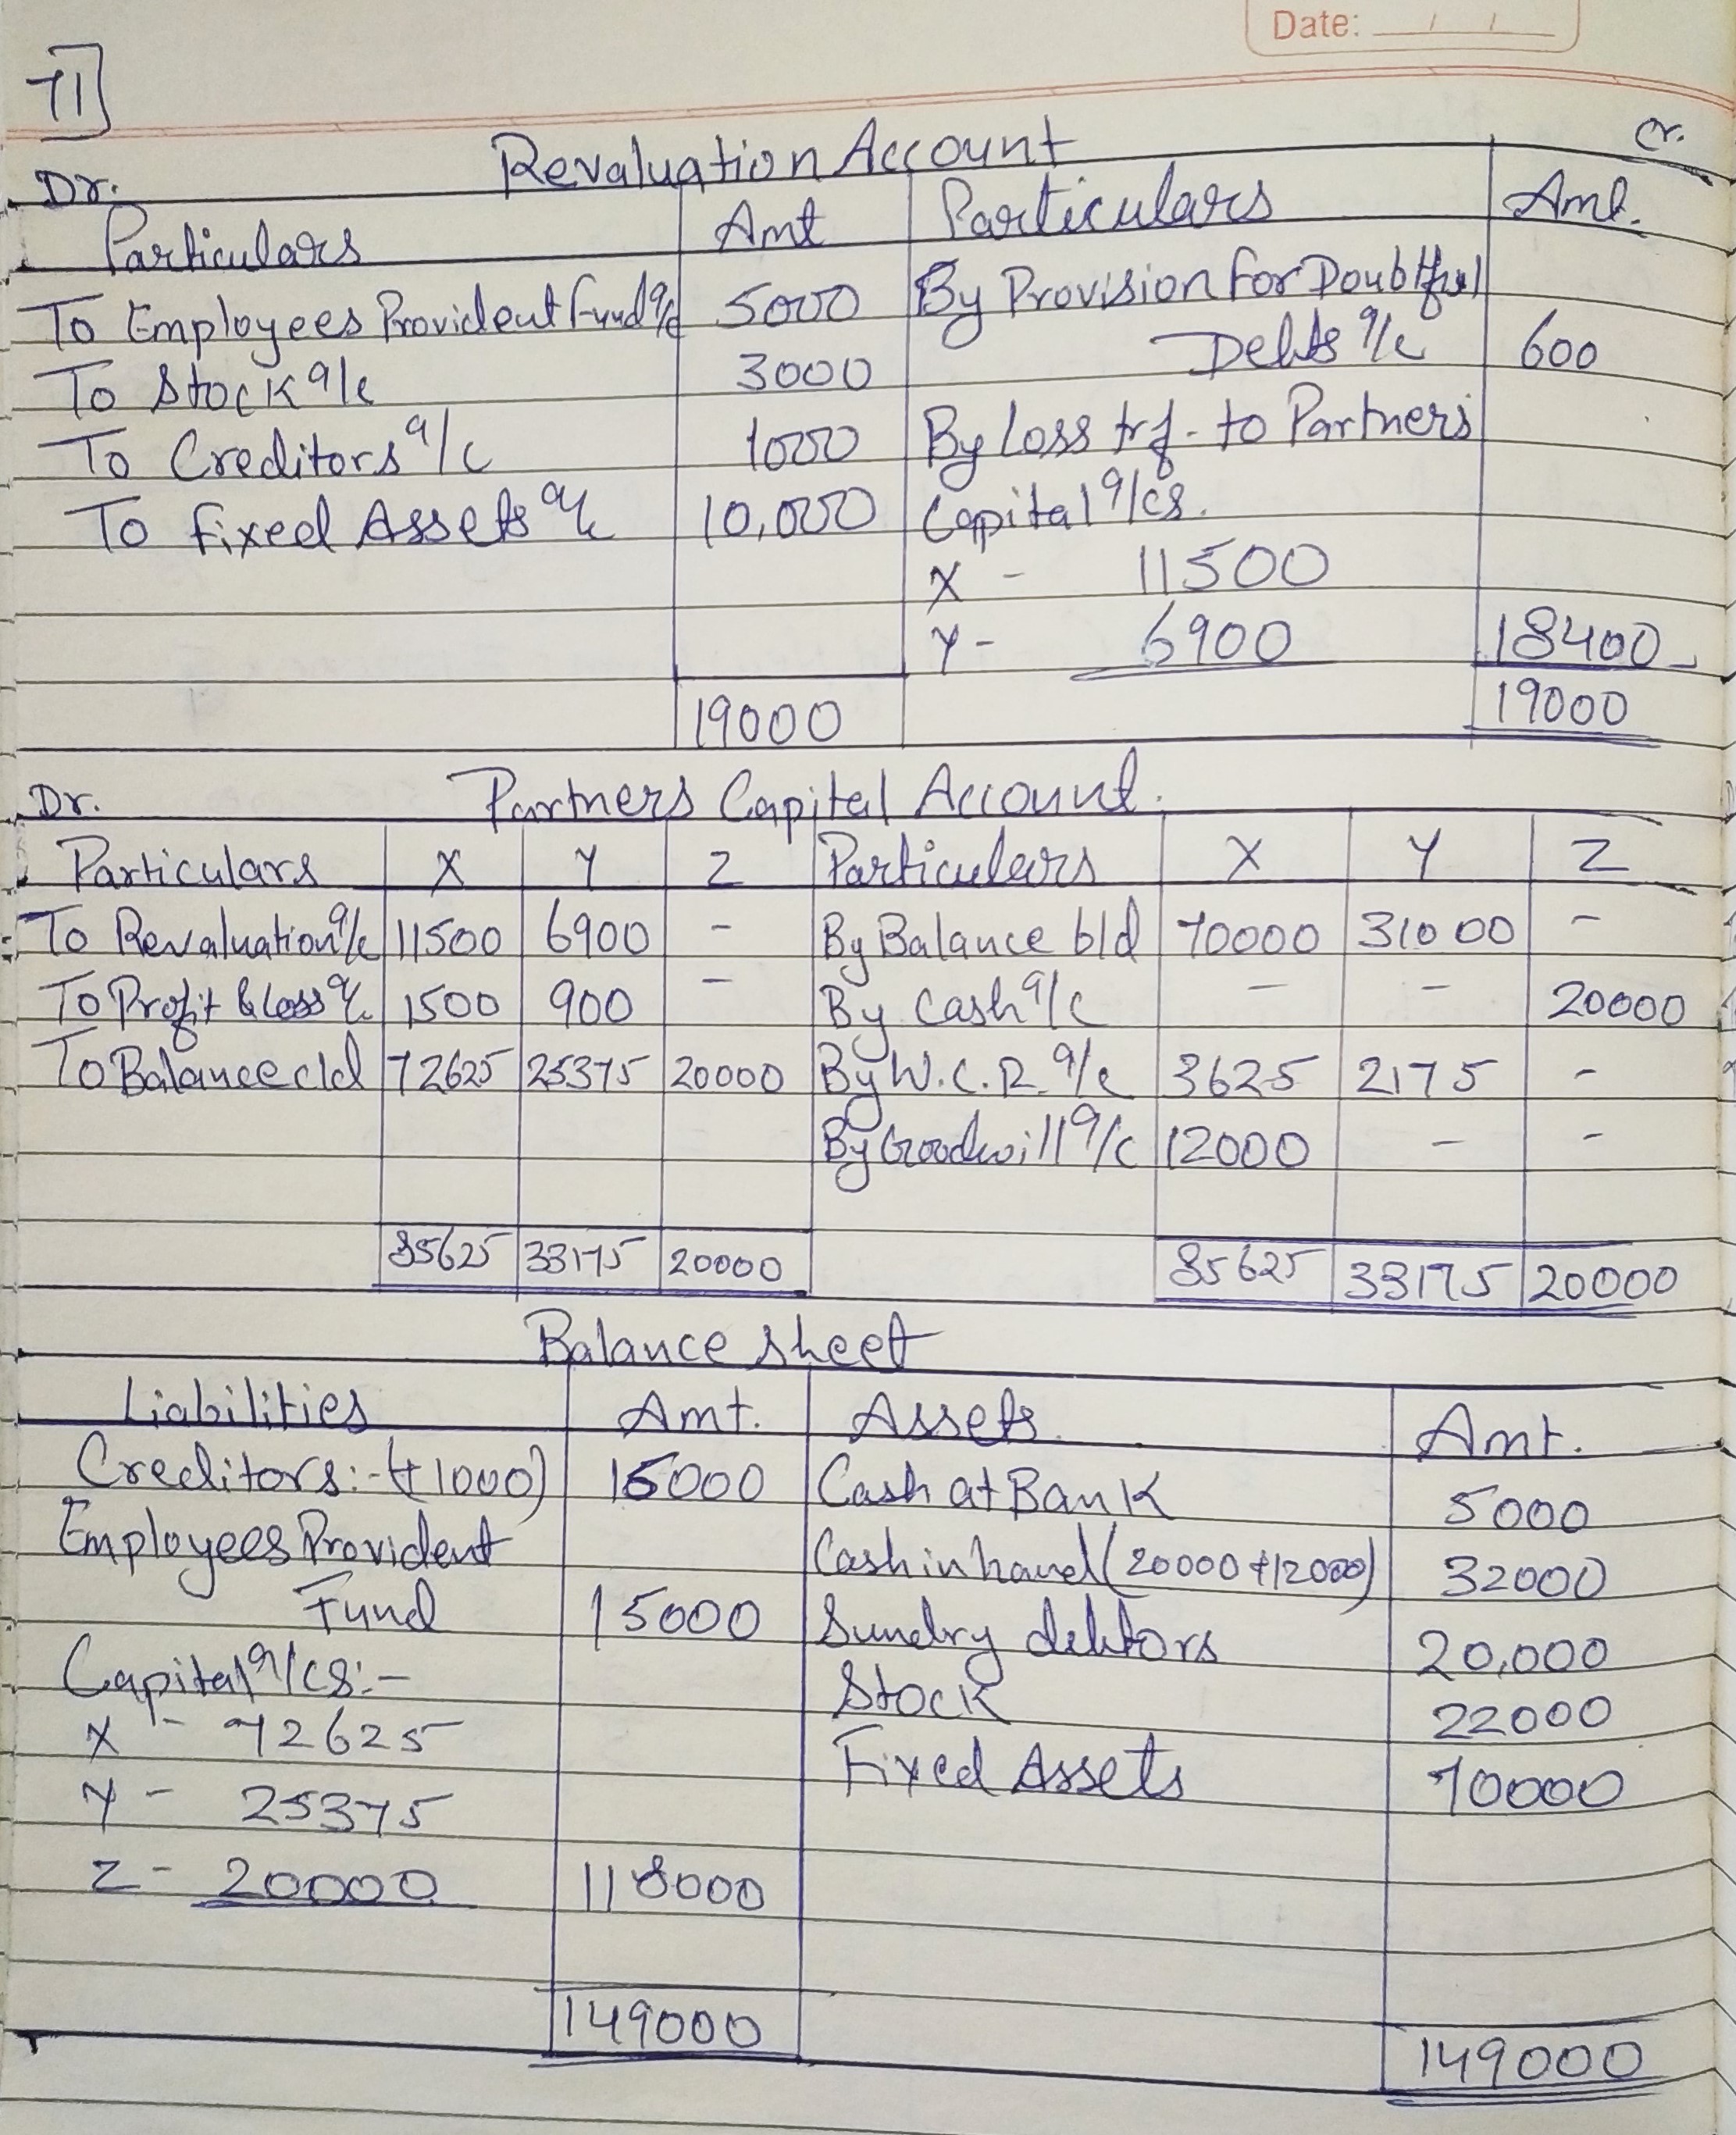 Date: / /
71]
Revaluation Account
Dr. Cr.
Particulars Amt Particulars Amt.
To Employees Provident Fund a/c 5000 By Provision For Doubtful
Debts a/c 600
To Stock a/c 3000
To Creditors a/c 1000 By Loss trf. to Partners
To Fixed Assets a/c 10,000 Capital a/cs.
X - 11500
Y - 6900 18400
19000 19000
Partners Capital Account.
Dr.
Particulars X Y Z Particulars X Y Z
To Revaluation a/c 11500 6900 - By Balance b/d 70000 31000 -
To Profit & Loss a/c 1500 900 - By Cash a/c - - 20000
To Balance c/d 72625 25375 20000 By W.C.R. a/c 3625 2175 -
By Goodwill a/c 12000 - -
85625 33175 20000 85625 33175 20000
Balance Sheet
Liabilities Amt. Assets Amt.
Creditors:- (+1000) 16000 Cash at Bank 5000
Employees Provident Cash in hand (20000+12000) 32000
Fund 15000 Sundry debtors 20,000
Capital a/cs:- Stock 22000
X - 72625 Fixed Assets 70000
Y - 25375
Z - 20000 118000
149000 149000